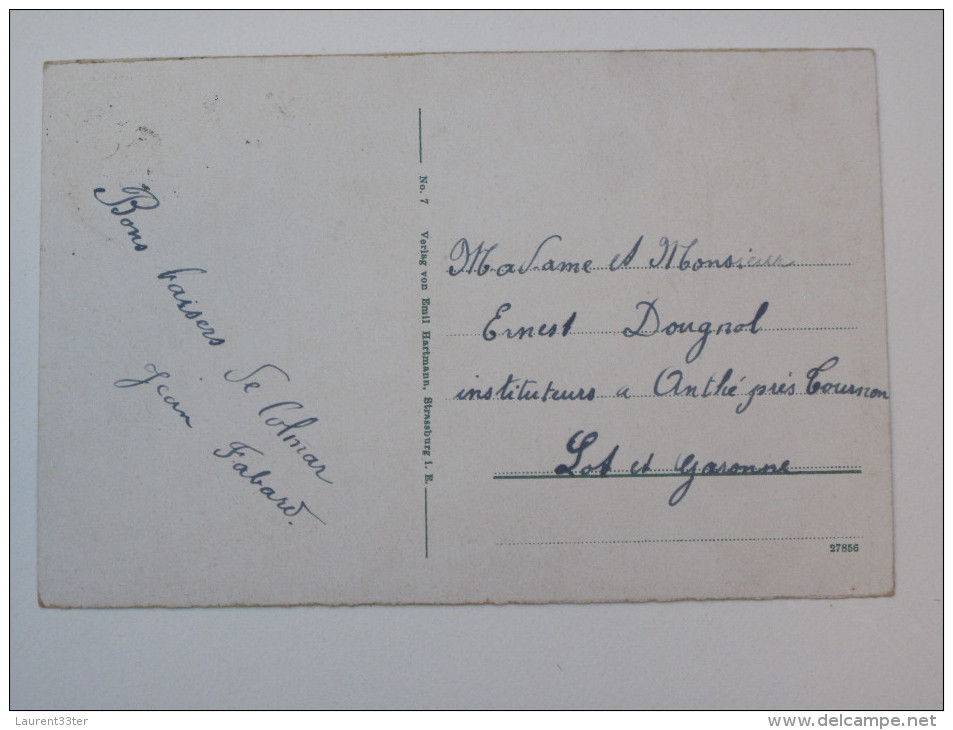 Bons baisers de Colmar
Jean Fabard.
No. 7 Verlag von Emil Hartmann, Strassburg i. E.
Madame et Monsieur
Ernest Dougnol
instituteurs a Anthé près Tournon
Lot et Garonne
27856
Laurent33ter
www.delcampe.net